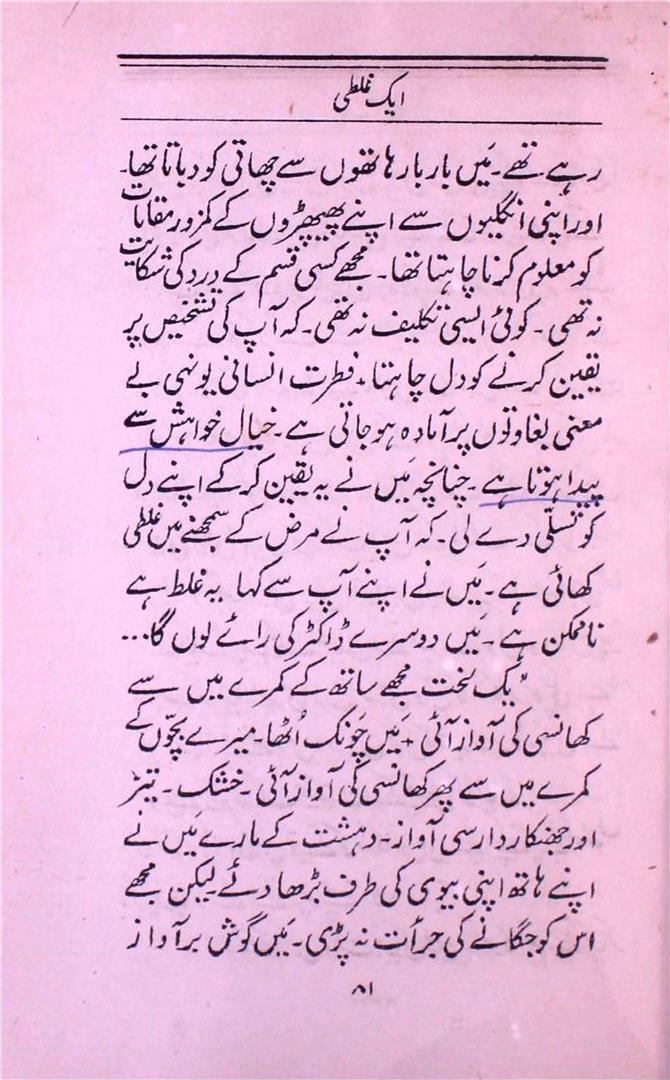 ایک غلطی
رہے تھے۔ مَیں بار بار ہاتھوں سے چھاتی کو دباتا تھا۔
اور اپنی انگلیوں سے اپنے پھیپھڑوں کے کمزور مقامات
کو معلوم کرنا چاہتا تھا۔ مجھے کسی قسم کے درد کی شکایت
نہ تھی۔ کوئی ایسی تکلیف نہ تھی۔ کہ آپ کی تشخیص پر
یقین کرنے کو دل چاہتا + فطرت انسانی یونہی بے
معنی بغاوتوں پر آمادہ ہو جاتی ہے۔ خیال خواہش سے
پیدا ہوتا ہے۔ چنانچہ مَیں نے یہ یقین کر کے اپنے دل
کو تسلّی دے لی۔ کہ آپ نے مرض کے سمجھنے میں غلطی
کھائی ہے۔ مَیں نے اپنے آپ سے کہا یہ غلط ہے
ناممکن ہے۔ مَیں دوسرے ڈاکٹر کی رائے لوں گا...
"یک لخت مجھے ساتھ کے کمرے میں سے
کھانسی کی آواز آئی + مَیں چَونک اُٹھا۔ میرے بچّوں کے
کمرے میں سے پھر کھانسی کی آواز آئی۔ خشک۔ تیز
اور جھنکار دار سی آواز۔ دہشت کے مارے مَیں نے
اپنے ہاتھ اپنی بیوی کی طرف بڑھا دئے۔ لیکن مجھے
اس کو جگانے کی جرأت نہ پڑی۔ مَیں گوش بر آواز
۸۱